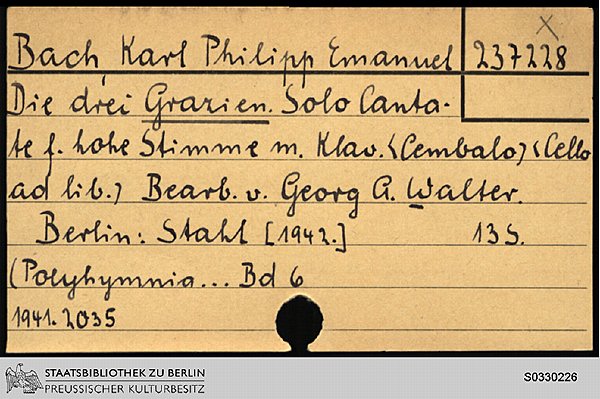 X
Bach, Karl Philipp Emanuel 237228
Die drei Grazien. Solo Canta-
te f. hohe Stimme m. Klav. <Cembalo> <Cello
ad lib.> Bearb. v. Georg A. Walter.
Berlin: Stahl [1942.] 13 S.
(Polyhymnia... Bd 6
1941.2035
STAATSBIBLIOTHEK ZU BERLIN
PREUSSISCHER KULTURBESITZ
S0330226